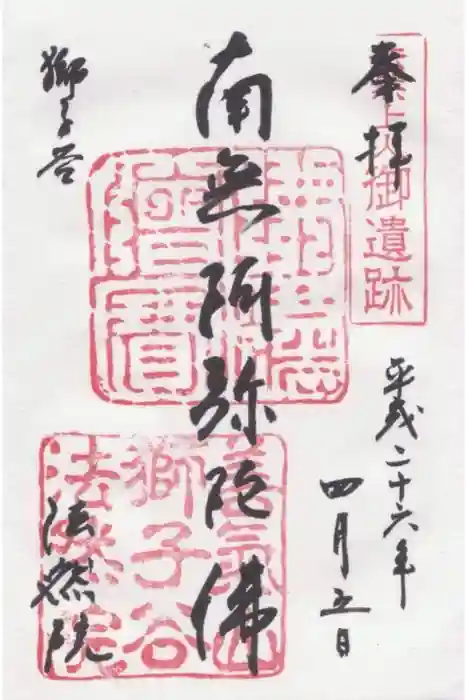 奉拝
御遺跡
平成二十六年
四月五日
南無阿弥陀佛
獅子谷
法然院
善氣山
獅子谷
法然院